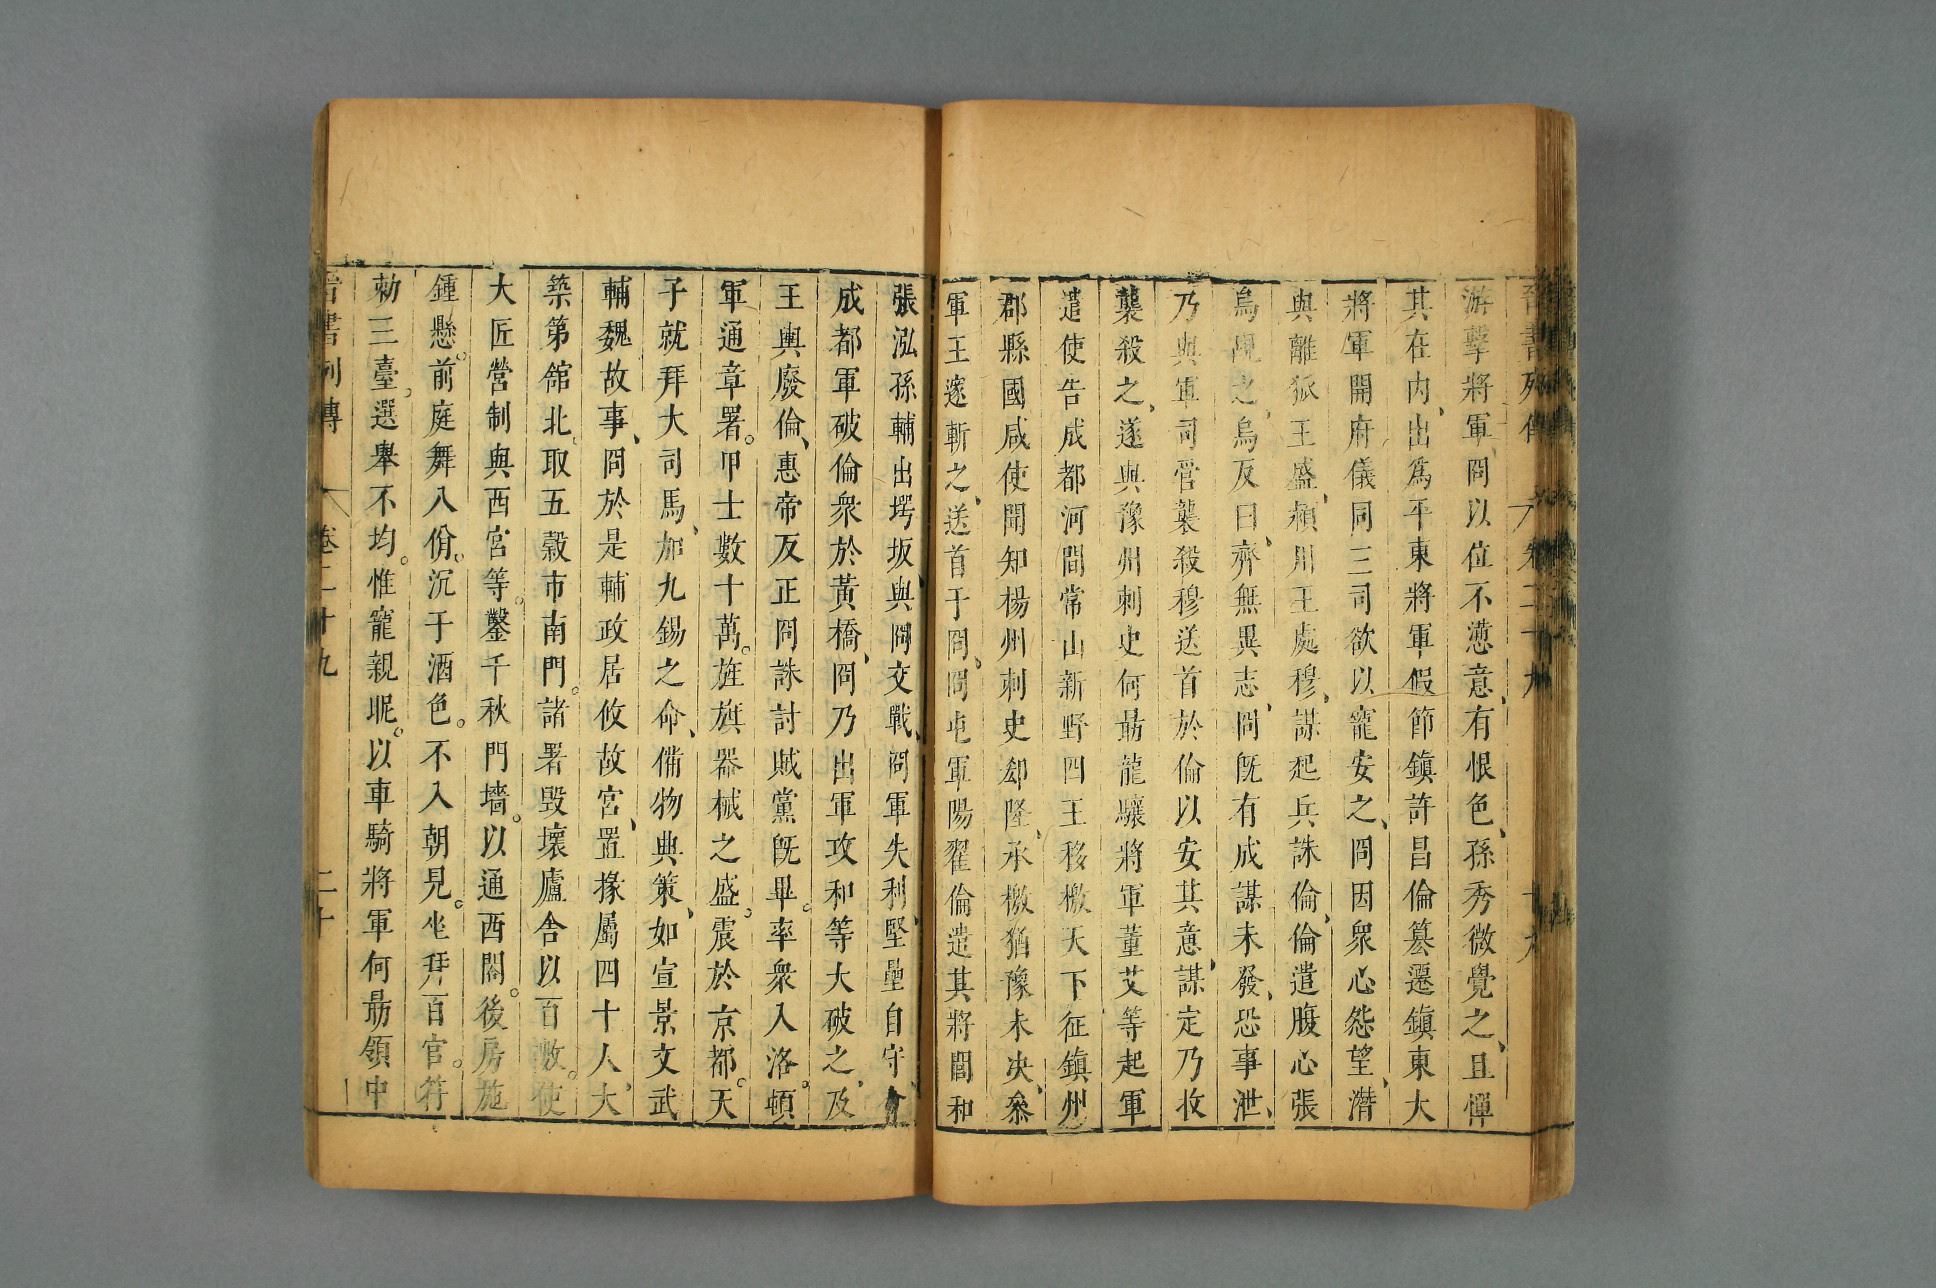 晉書列傳 卷二十九 十九
游擊將軍冏以位不滿意、有恨色、孫秀微覺之、且憚
其在內、出爲平東將軍假節鎮許昌倫簒遷鎮東大
將軍開府儀同三司欲以寵安之、冏因衆心怨望、潛
與離狐王盛、潁川王處穆、謀起兵誅倫、倫遣腹心張
烏覘之、烏反曰、齊無異志、冏旣有成謀未發、恐事泄、
乃與軍司管襲殺穆送首於倫以安其意、謀定乃收
襲殺之、遂與豫州刺史何勗龍驤將軍董艾等起軍
遣使告成都河間常山新野四王移檄天下征鎮州
郡縣國咸使聞知楊州刺史郄隆、承檄猶豫未决、叅
軍王邃斬之、送首于冏、冏屯軍陽翟倫遣其將閭和
張泓孫輔出堮坂、與冏交戰、冏軍失利、堅壘自守、會
成都軍破倫衆於黃橋、冏乃出軍攻和等大破之、及
王輿廢倫、惠帝反正冏誅討賊黨旣畢。率衆入洛。頓
軍通章署。甲士數十萬。旌旗器械之盛。震於京都。天
子就拜大司馬、加九錫之命、備物典策、如宣景文武
輔魏故事、冏於是輔政居攸故宮、置掾屬四十人、大
築第舘北、取五穀市南門。諸署毀壞廬舍以百數。使
大匠營制與西宮等。鑿千秋門墻。以通西閣。後房施
鍾懸。前庭舞八佾。沉于酒色。不入朝見。坐拜百官。符
勑三臺。選舉不均。惟寵親昵。以車騎將軍何勗領中
晉書列傳 卷二十九 二十